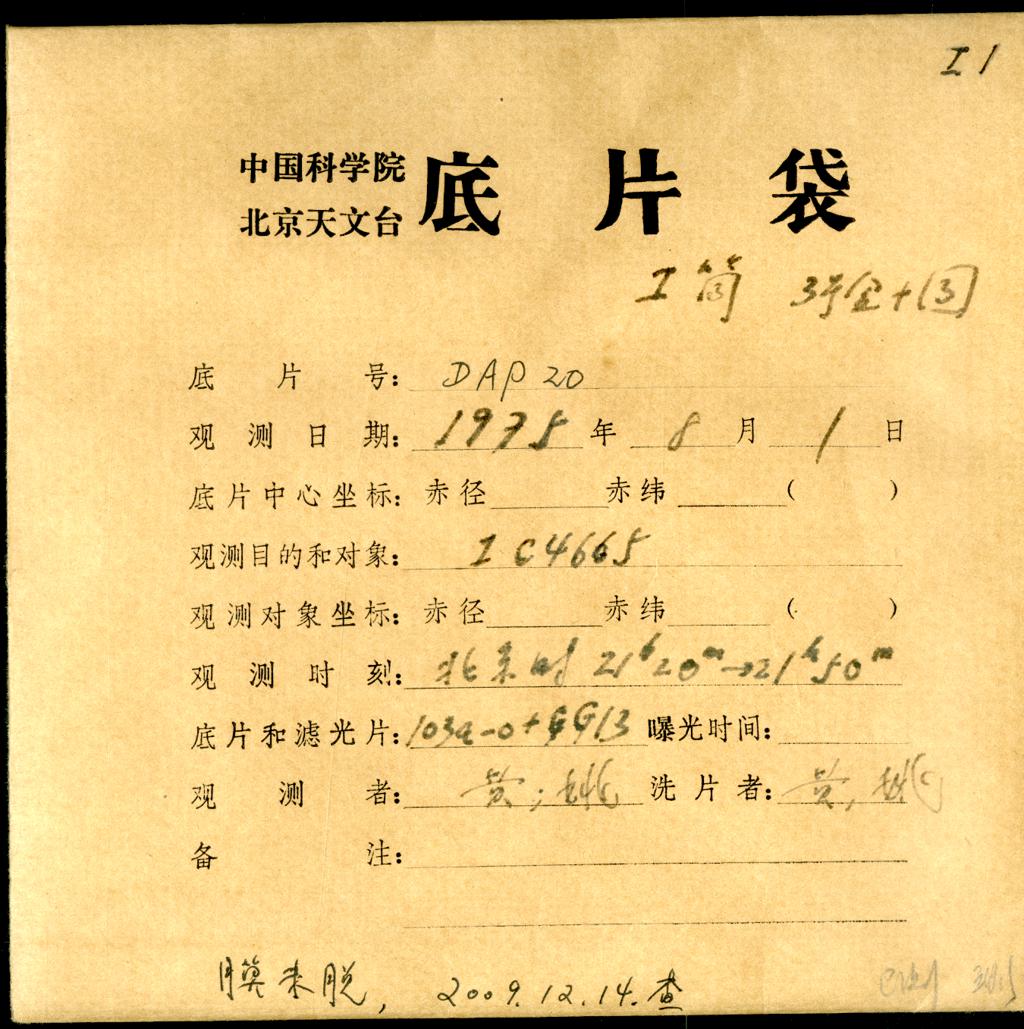 I 1
中国科学院
北京天文台
底片袋
I 筒 3号金+③
底片号: DAP 20
观测日期: 1975年 8月 1日
底片中心坐标: 赤径 赤纬 ( )
观测目的和对象: I C4665
观测对象坐标: 赤径 赤纬 ( )
观测时刻: 北京时 21h20m→21h50m
底片和滤光片: 103a-o+GG13 曝光时间:
观测者: 黄; 姚 洗片者: 黄, 姚
备注:
膜未脱, 2009.12.14.查